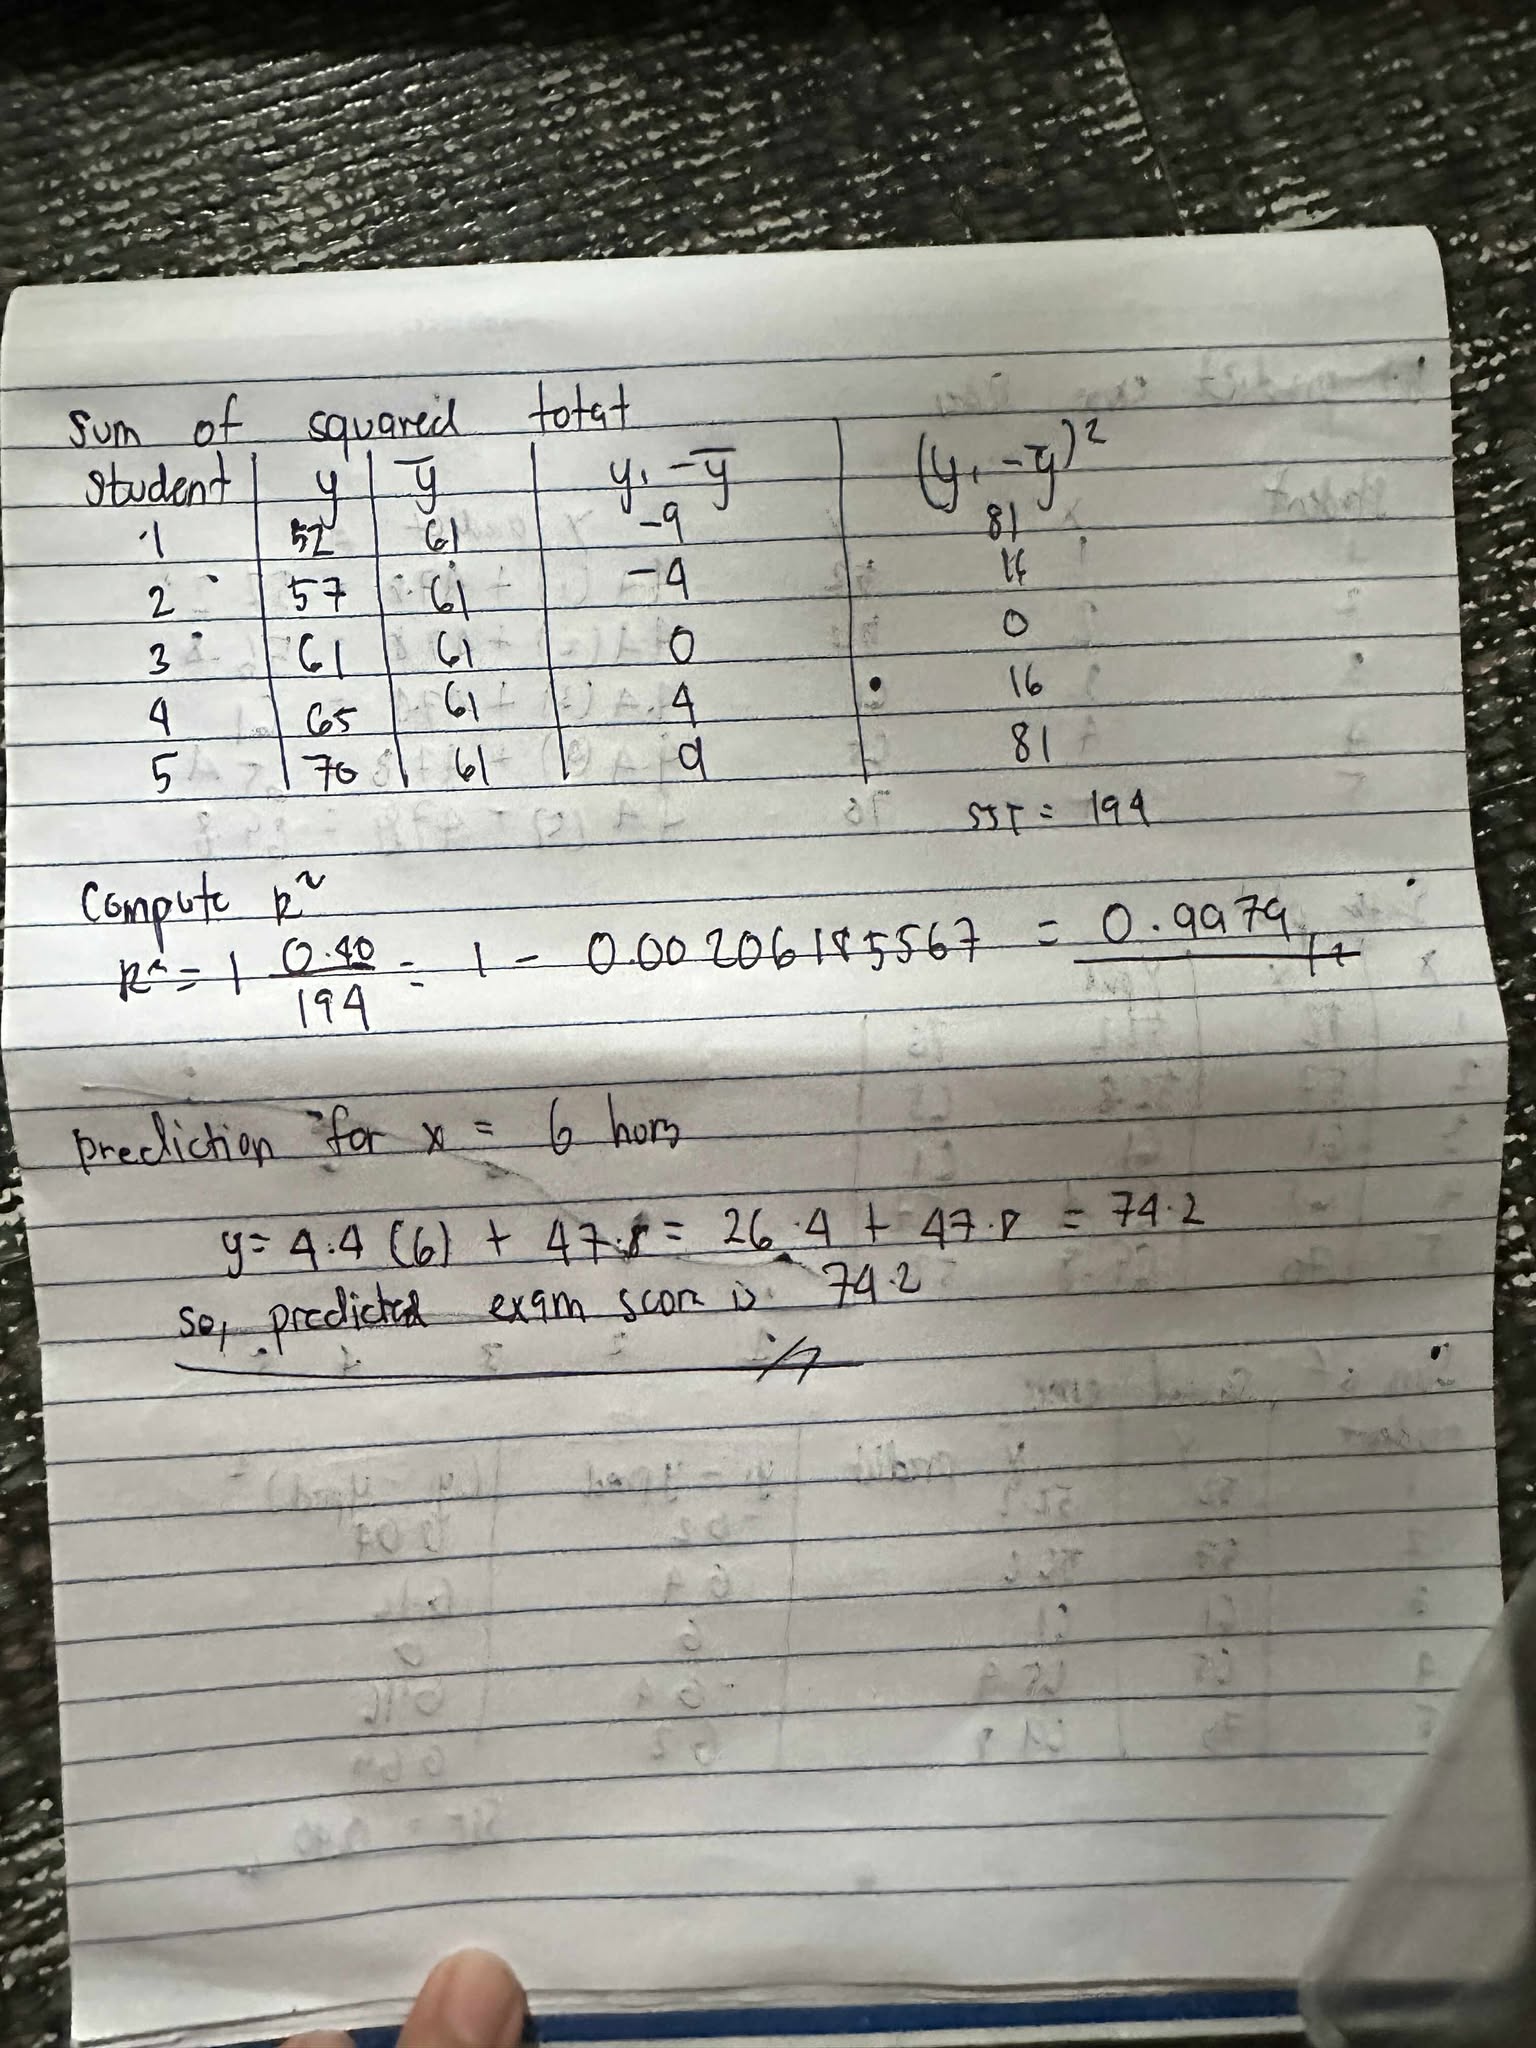 Sum of squared total
student y y̅ y₁ - y̅ (y₁ - y̅)²
1 52 61 -9 81
2 57 61 -4 16
3 61 61 0 0
4 65 61 4 16
5 70 61 9 81
SST = 194
Compute R²
R² = 1 0.40/194 = 1 - 0.00206185567 = 0.9979
prediction for x = 6 hors
y = 4.4 (6) + 47.8 = 26.4 + 47.8 = 74.2
so, predicted exam score is 74.2